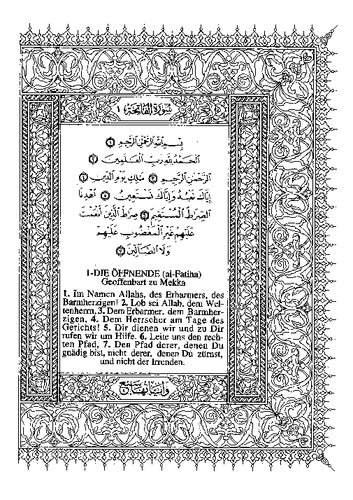 سورة الفاتحة ١
بسم الله الرحمن الرحيم ١
الحمد لله رب العلمين ٢
الرحمن الرحيم ٣ ملك يوم الدين ٤
إياك نعبد وإياك نستعين ٥ اهدنا
الصرط المستقيم ٦ صرط الذين أنعمت
عليهم غير المغضوب عليهم
ولا الضالين ٧
1-DIE ÖFFNENDE (al-Fatiha)
Geoffenbart zu Mekka
1. Im Namen Allahs, des Erbarmers, des
Barmherzigen! 2. Lob sei Allah, dem Wel-
tenherrn, 3. Dem Erbarmer, dem Barmher-
zigen, 4. Dem Herrscher am Tage des
Gerichts! 5. Dir dienen wir und zu Dir
rufen wir um Hilfe. 6. Leite uns den rech-
ten Pfad, 7. Den Pfad derer, denen Du
gnädig bist, nicht derer, denen Du zürnst,
und nicht der Irrenden.